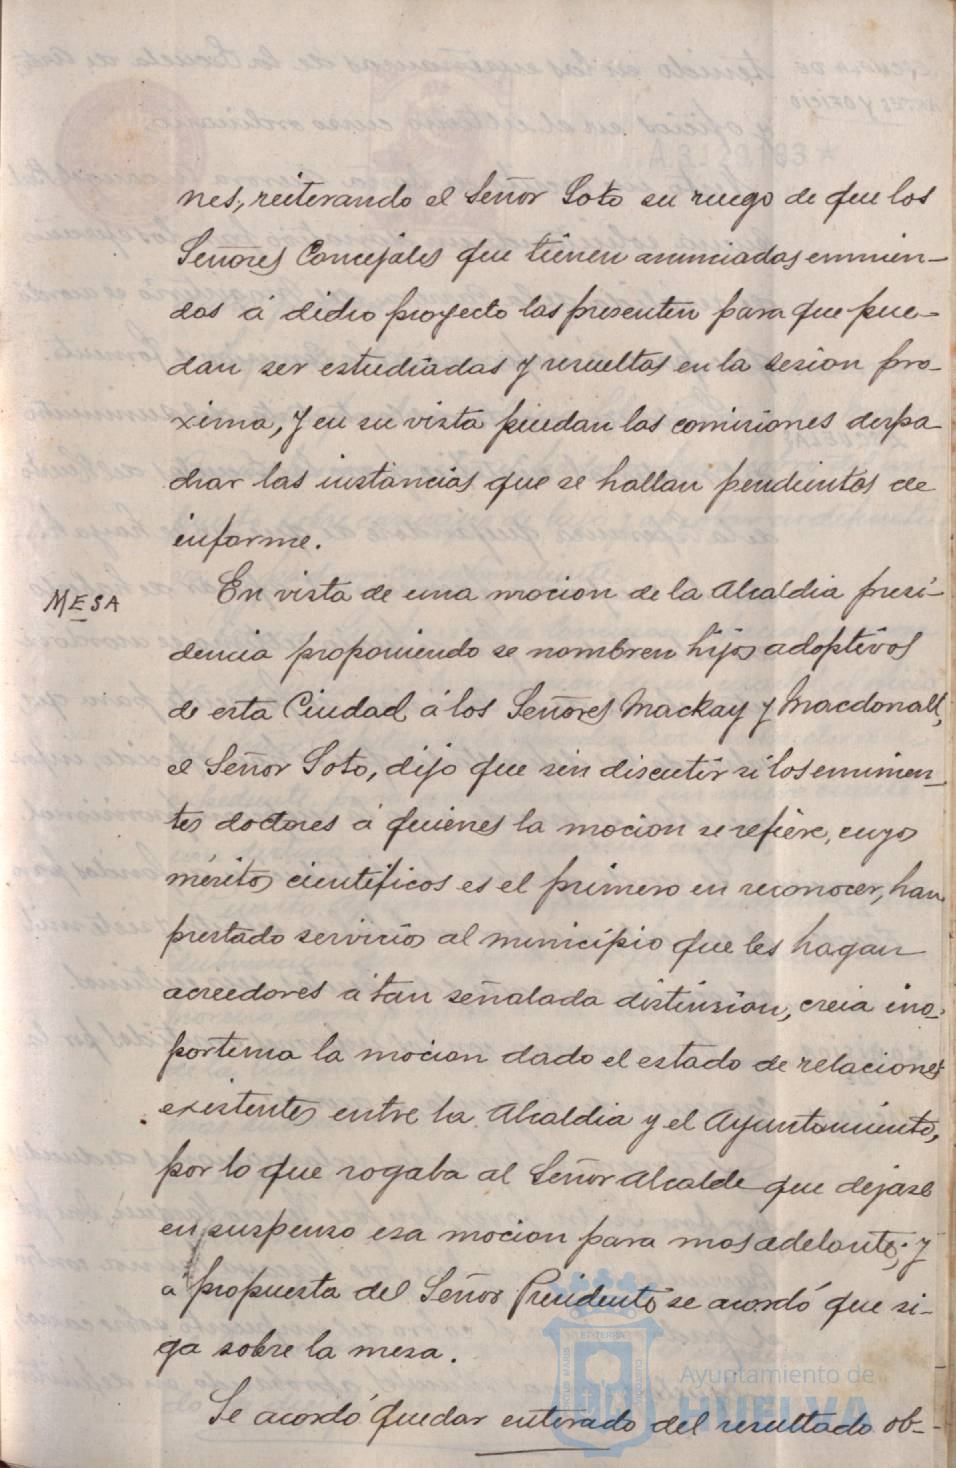 nes, reiterando el Señor Soto su ruego de que los
Señores Concejales que tienen anunciadas enmien-
das á dicho proyecto las presenten para que pue-
dan ser estudiadas y resueltas en la sesion pro-
xima, y en su vista puedan las comisiones despa-
char las instancias que se hallan pendientes de
informe.
MESA
En vista de una mocion de la Alcaldia presi-
dencia proponiendo se nombren hijos adoptivos
de esta Ciudad á los Señores Mackay y Macdonall,
el Señor Soto, dijo que sin discutir si los eminen-
tes doctores á quienes la mocion se refiere, cuyos
méritos cientificos es el primero en reconocer, han
prestado servicios al municipio que les hagan
acreedores á tan señalada distinsion, creia ino-
portuna la mocion dado el estado de relaciones
existentes entre la Alcaldia y el Ayuntamiento,
por lo que rogaba al Señor Alcalde que dejase
en suspenso esa mocion para mas adelante; y
á propuesta del Señor Presidente se acordó que si-
ga sobre la mesa.
Se acordó quedar enterado del resultado ob-
Ayuntamiento de
HUELVA